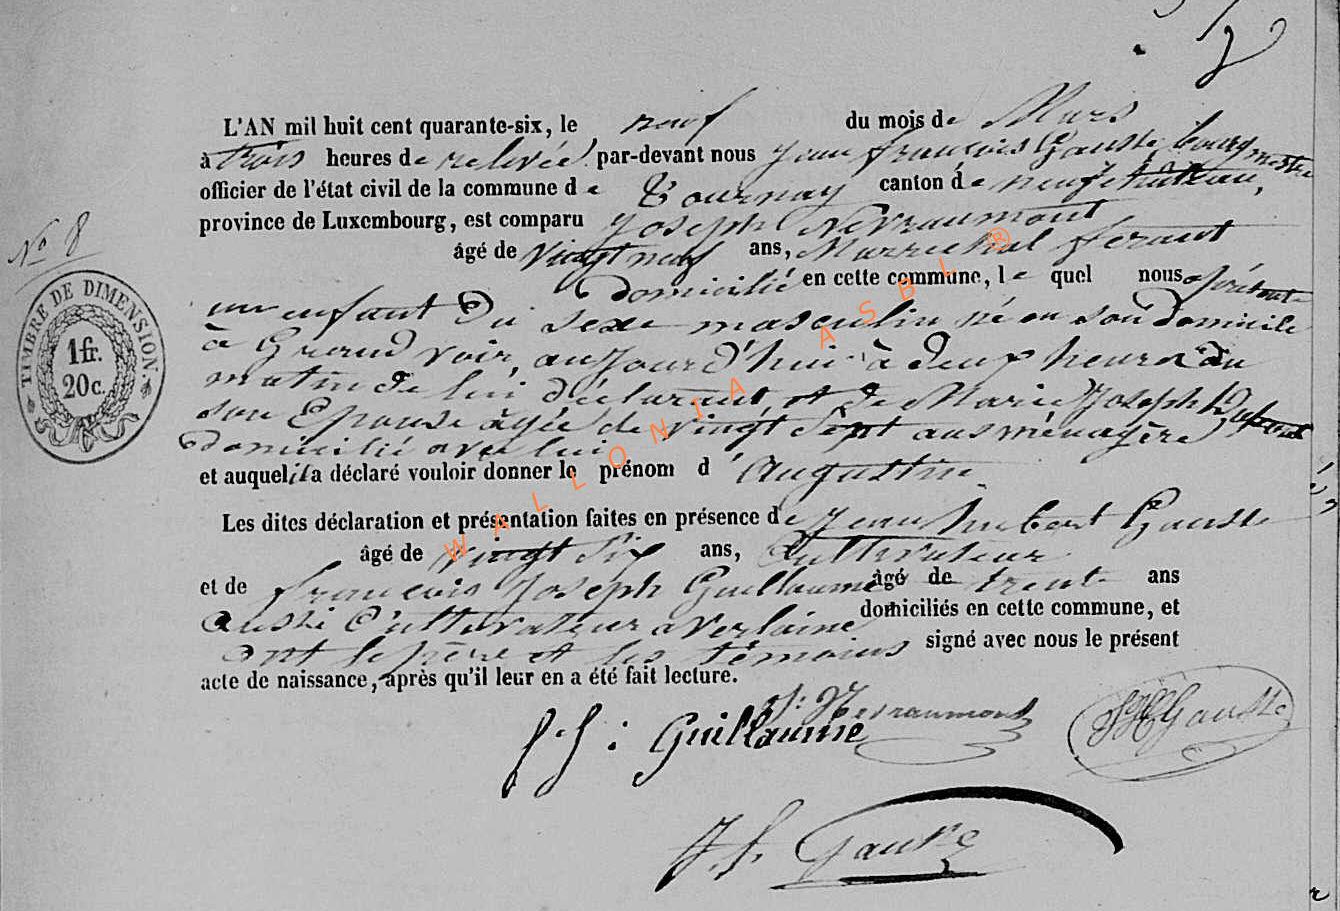 L'AN mil huit cent quarante-six, le neuf du mois de Mars
à trois heures de relevée par-devant nous Jean françois Gauste, bourgmestre
officier de l'état civil de la commune de Tournay canton de neufchateau,
province de Luxembourg, est comparu Joseph Nevraumont
N° 8
âgé de vingt neuf ans, Marrechal ferant
domicilié en cette commune, le quel nous présente
un enfant du sexe masculin né en son domicile
à Grand voir, aujourd'hui à deux heures du
matin de lui déclarant et de Marie Joseph
son Epouse agée de vingt sept ans ménagère
domicilié avec lui
et auquel il a déclaré vouloir donner le prénom d'Augustin
Les dites déclaration et présentation faites en présence de Jean hubert Gauste
âgé de vingt six ans, Cultivateur
et de françois Joseph Guillaume âgé de trente ans
aussi Cultivateur a Verlaine domiciliés en cette commune, et
ont le père et les témoins signé avec nous le présent
acte de naissance, après qu'il leur en a été fait lecture.
J: Nevraumont
JH Gauste
f. J: Guillaume
J f. Gauste
TIMBRE DE DIMENSION
1 fr.
20 c.
WALLONIA ASBL ®